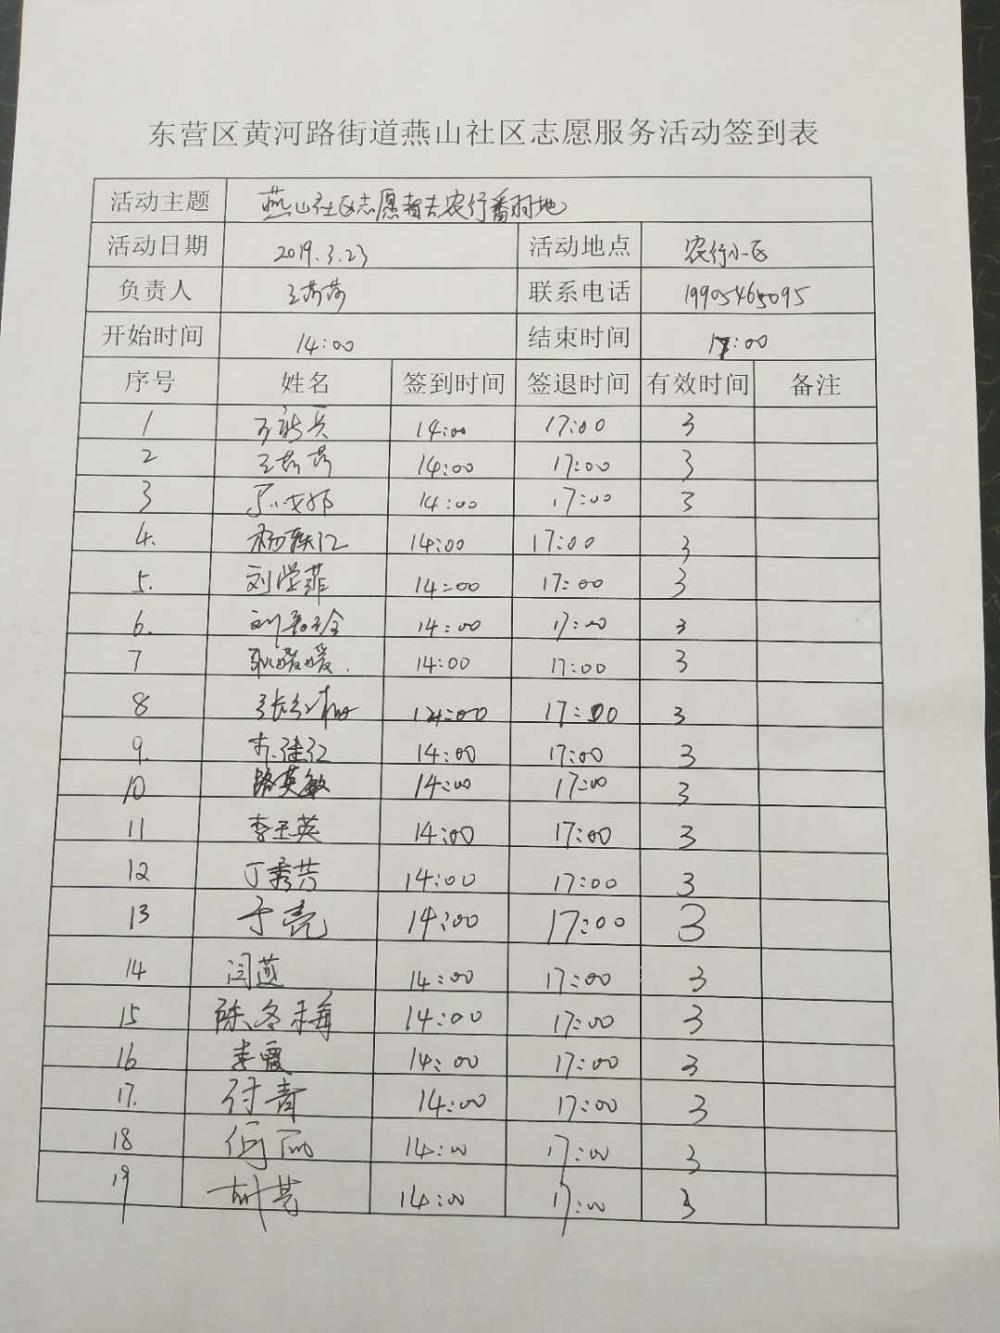 东营区黄河路街道燕山社区志愿服务活动签到表
活动主题 燕山社区志愿者去农行翻地
活动日期 2019.3.23 活动地点 农行小区
负责人 王芬芬 联系电话 19905465095
开始时间 14:00 结束时间 17:00
序号 姓名 签到时间 签退时间 有效时间 备注
1 14:00 17:00 3
2 14:00 17:00 3
3 14:00 17:00 3
4. 14:00 17:00 3
5. 刘学菲 14:00 17:00 3
6. 14:00 17:00 3
7 耿媛媛. 14:00 17:00 3
8 14:00 17:00 3
9. 14:00 17:00 3
10 路英敏 14:00 17:00 3
11 李玉英 14:00 17:00 3
12 丁秀芳 14:00 17:00 3
13 于亮 14:00 17:00 3
14 闫燕 14:00 17:00 3
15 陈冬梅 14:00 17:00 3
16 李霞 14:00 17:00 3
17. 付青 14:00 17:00 3
18 何丽 14:00 17:00 3
19 胡芳 14:00 17:00 3